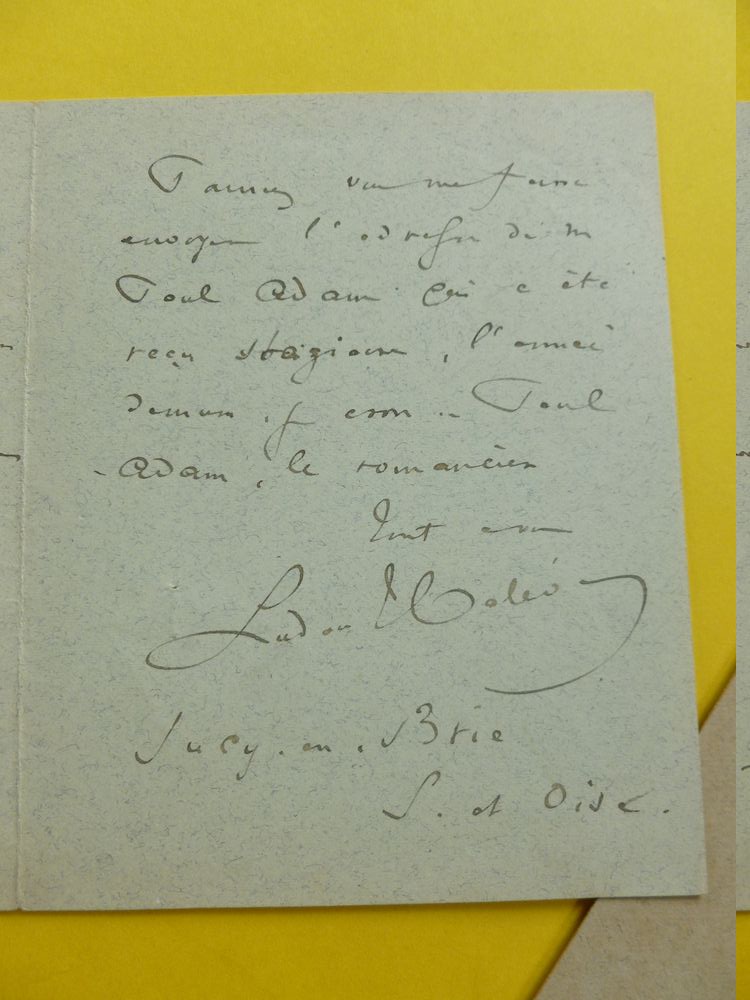 Pouvez vous me faire
envoyer l'adresse de M
Paul Adam qui a été
reçu stagiaire, l'année
dernière, je crois .. Paul
Adam, le romancier
Tout à vous
Ludovic Halévy
Sucy-en-Brie
S. et Oise.